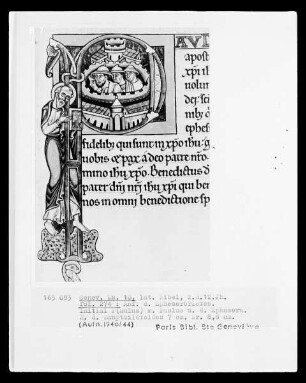 AVL
apost
xpi ih
uolun
dei: sci
ephes
fidelib; qui sunt in xpo ihu: g
uobis & pax a deo patre nro
mino ihu xpo. Benedictus d
pater dni nri ihu xpi qui be
nos in omni benedictione sp
165 695 Genev. Ms. 10, lat. Bibel, 2.H.12.Jh.
Fol. 274 : Anf. d. Epheserbriefes.
Initial P(aulus) m. Paulus u. d. Ephesern.
(Aufn.1940/44) Paris Bibl. Ste Geneviève